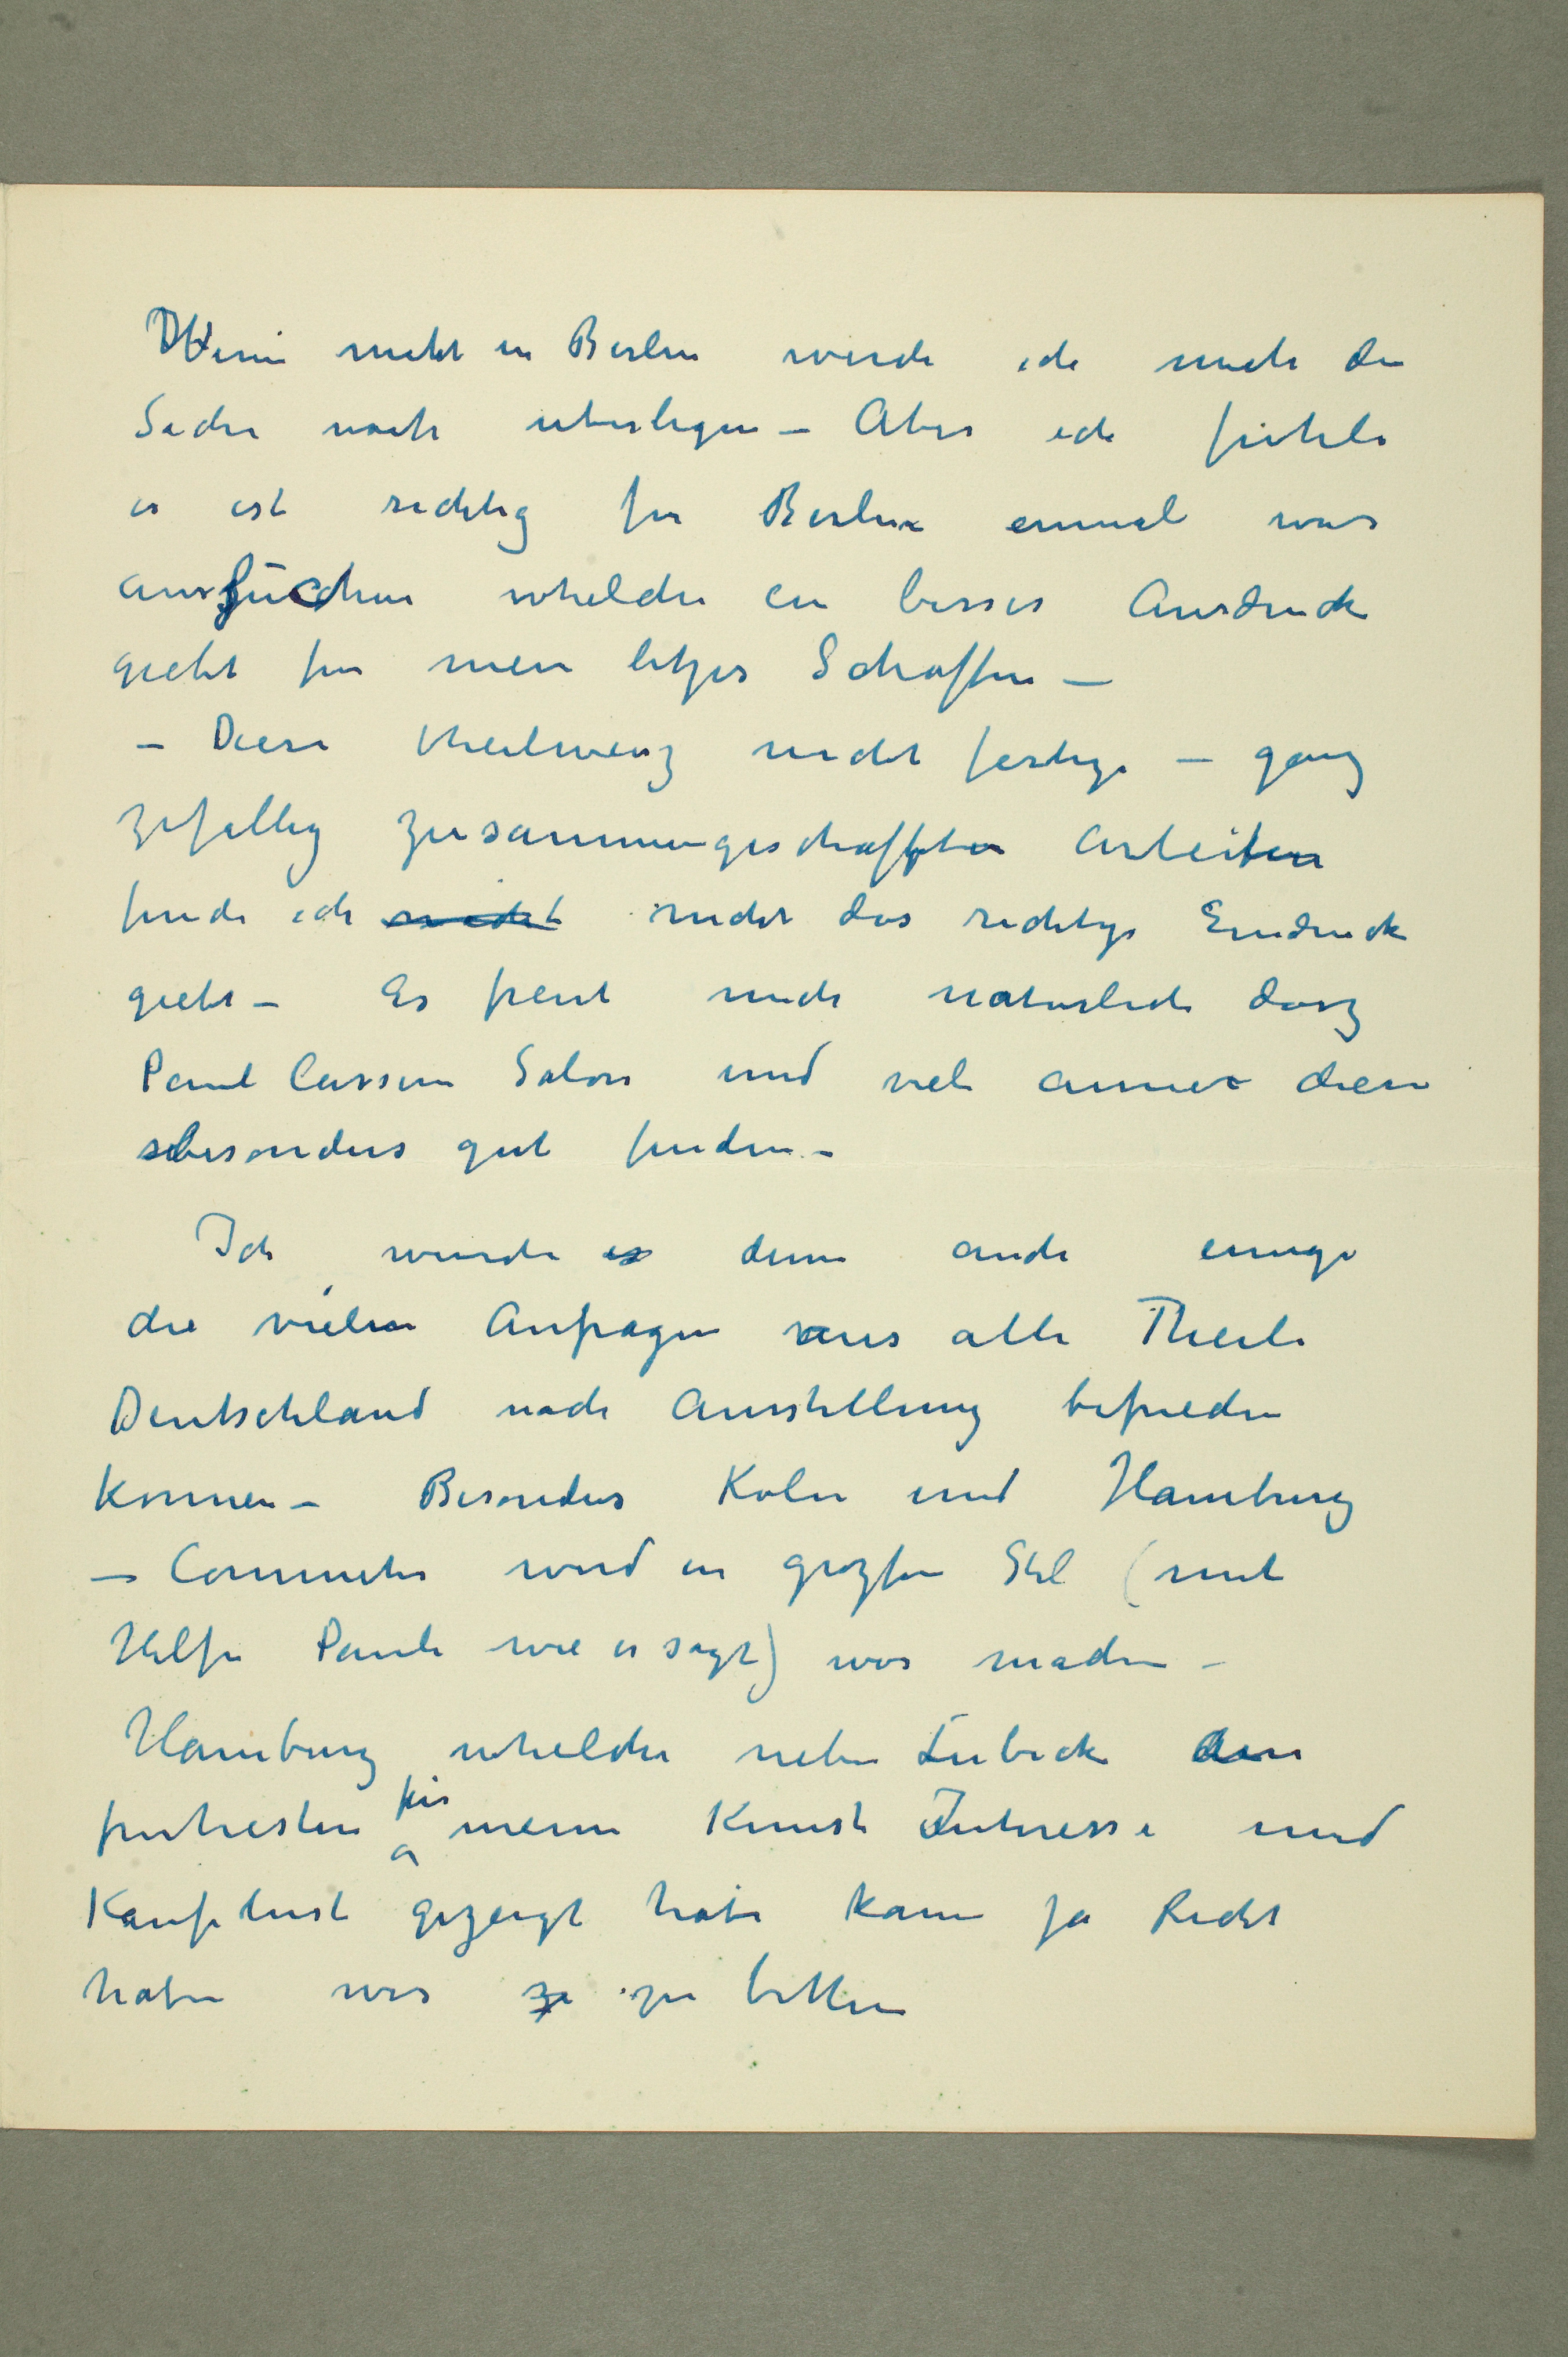 Wenn nicht in Berlin werde ich mich die
Sache noch uberlegen – Aber ich fühle
es ist richtig für Berlin einmal was
aussuchen whelche ein besser Ausdruck
giebt für mein letzes Schaffen –
– Diese theilweiz nicht fertige – ganz
zufallig zusammengeschafften Arbeiten
finde ich nicht nicht das richtige Eindruck
giebt – Es freut mich naturlich dasz
Paul Cassirer Salon und viele diese
besonders gut finden –
Ich wurde es denn auch einige
die vielen Anfragen aus alle Theile
Deutschland nach Ausstellung befrieden
konnen – Besonders Koln und Hamburg
– Commeter wird in groszen Stil (mit
Hilfe Pauli wie er sagt) was machen –
Hamburg whelche neben Lubeck den
fruhesten für meine Kunst Interesse und
Kauflust gezeigt habe kann ja Recht
haben was zu zu bitten